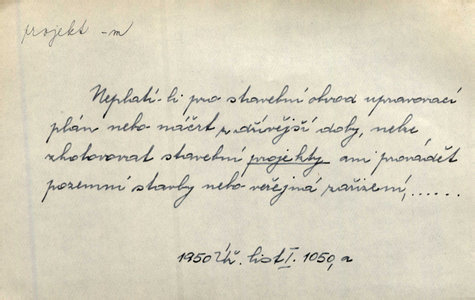 projekt -m
Neplatí-li pro stavební obvod upravovací
plán nebo náčrt z dřívější doby, nelze
zhotovovat stavební projekty ani provádět
pozemní stavby nebo veřejná zařízení,......
1950 Úř. list I. 1050, a